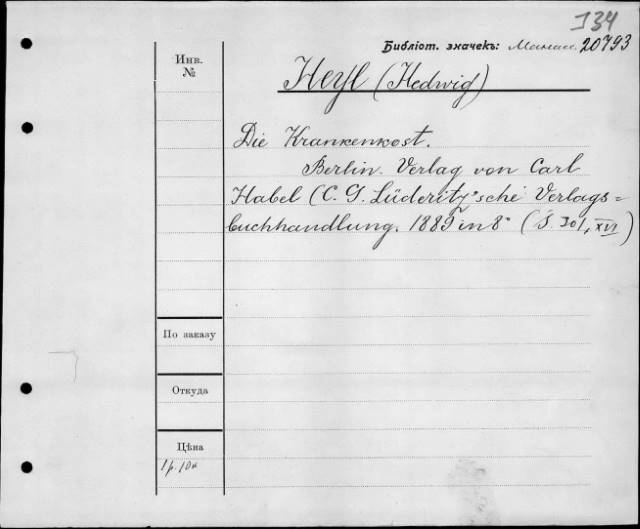 134
Библіот. значекъ: 20793
Инв.
№
Heyl (Hedwig)
Die Krankenkost.
Berlin. Verlag von Carl
Habel (C. G. Lüderitz'sche Verlags=
buchhandlung. 1889 in 8° (S. 301, XVI)
По заказу
Откуда
Цѣна
1 р. 10 к